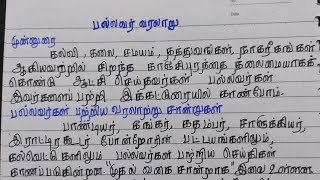 பல்லவர் வரலாறு
முன்னுரை
கல்வி, கலை, சமயம், தத்துவங்கள், நாகரீகங்கள்
ஆகியவற்றில் சிறந்த காஞ்சிபுரத்தை தலைமையாகக்
கொண்டு ஆட்சி செய்தவர்கள் பல்லவர்கள்
இவர்களைப் பற்றி இக்கட்டுரையில் காண்போம்-
பல்லவர்கள் பற்றிய வரலாற்று சான்றுகள்
பாண்டியர், கங்கர், கதம்பர், சாளுக்கியர்,
இராட்டிரகூடர் போன்றோரின் பட்டயங்களிலும்,
கல்வெட்டுகளிலும் பல்லவர்கள் பற்றிய செய்திகள்
காணப்படுகின்றன முதல் வகை சான்றாக இவை உள்ளன.